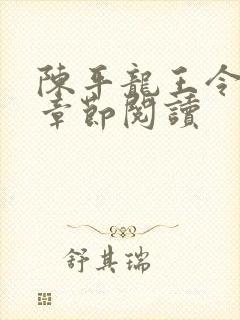 陳平龍王令
章節閱讀
舒其瑞